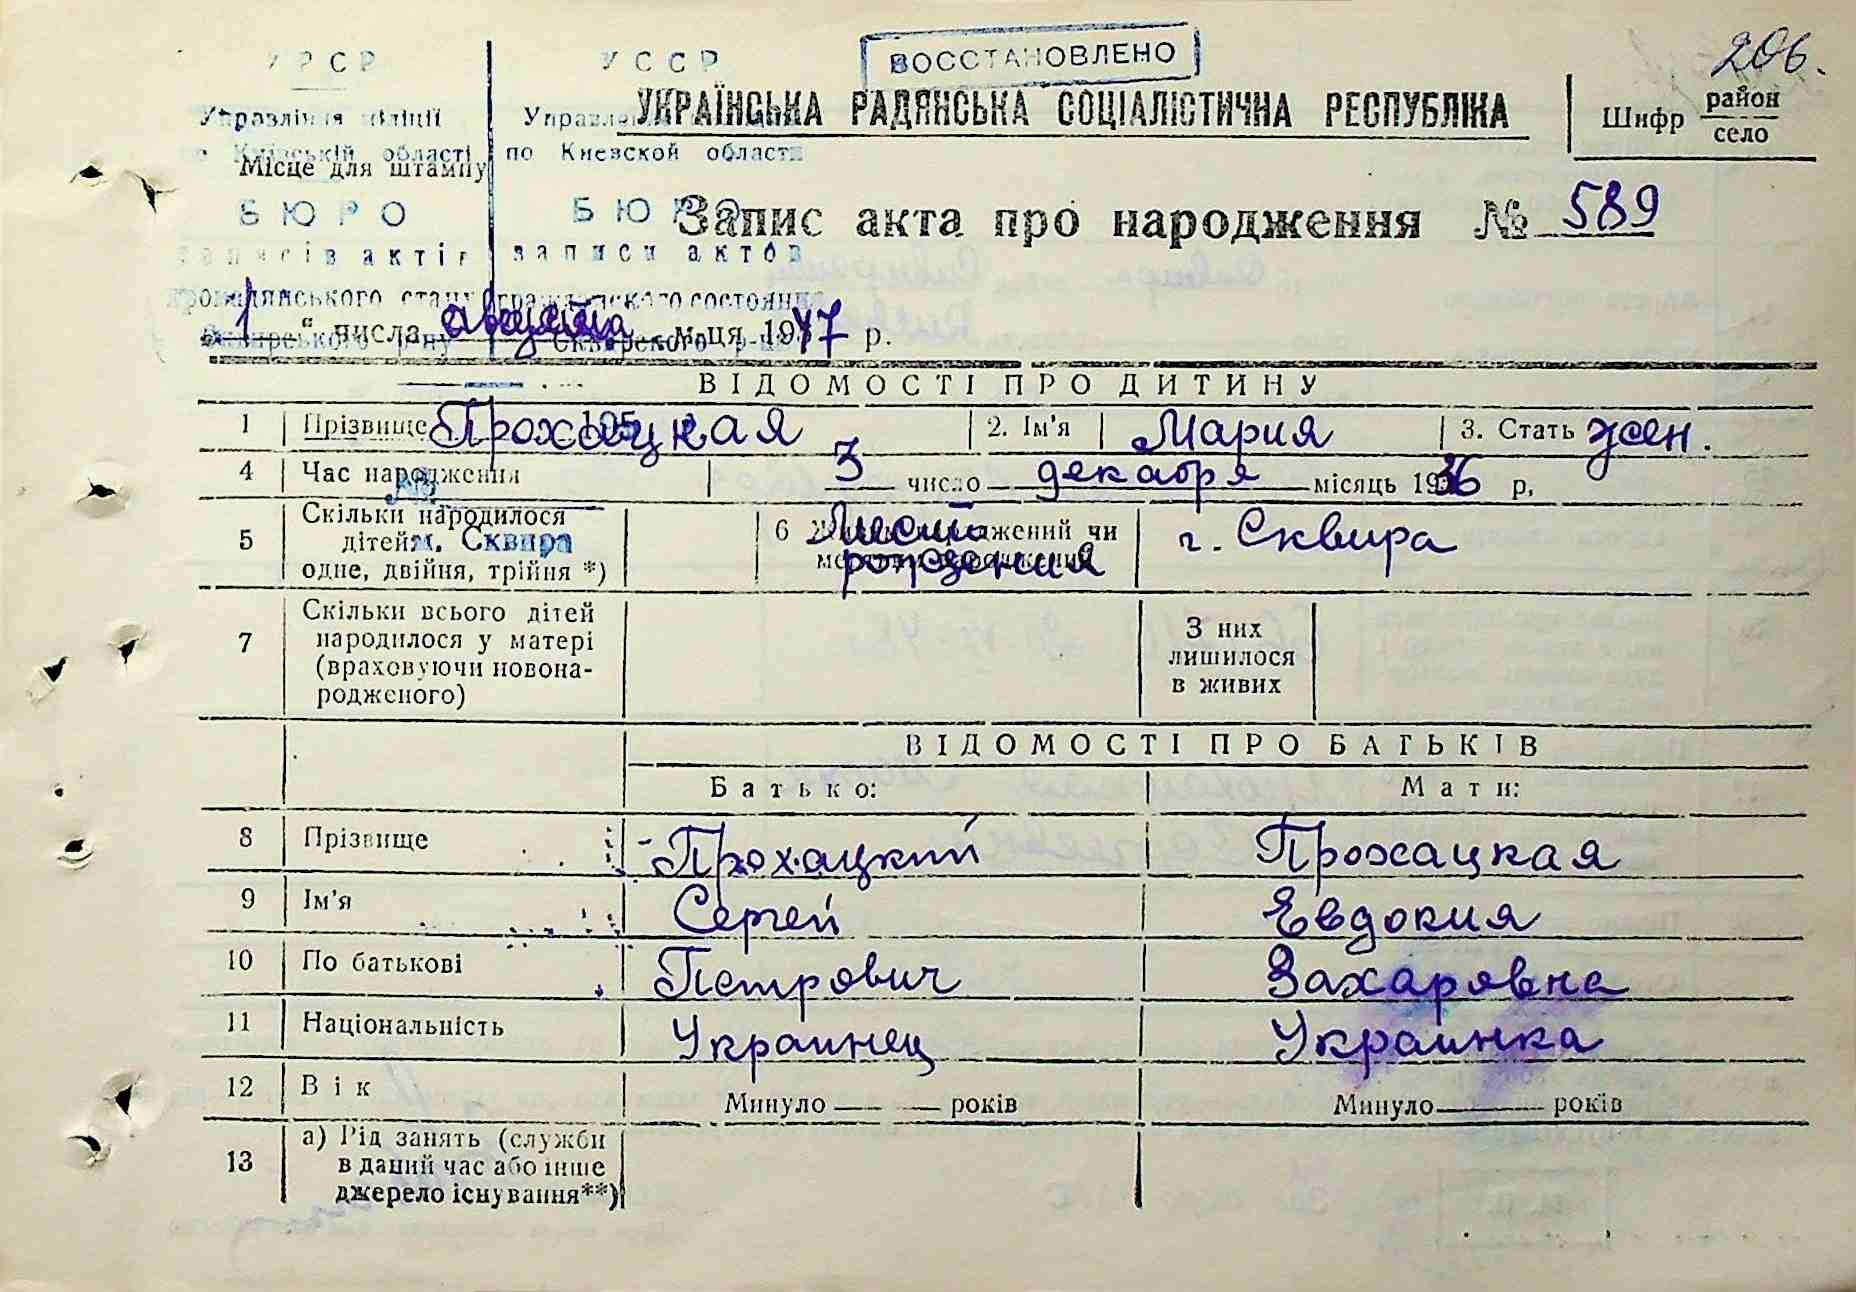 206.
ВОССТАНОВЛЕНО
УРСР
УССР
УКРАЇНСЬКА РАДЯНСЬКА СОЦІАЛІСТИЧНА РЕСПУБЛІКА
Шифр район
село
Управління міліції
по Київській області
Управлен
по Киевской области
Місце для штампу
БЮРО
БЮРО
Запис акта про народження № 589
записів актів
записи актов
громадянського стану
гражданского состояния
Сквирського р-ну
Сквирского р-на
„1“ числа августа м-ця 1947 р.
ВІДОМОСТІ ПРО ДИТИНУ
1 Прізвище Прохацкая 2. Ім'я Мария 3. Стать жен.
195
4 Час народження 3 число декабря місяць 1936 р,
№
5 Скільки народилося
дітей
одне, двійня, трійня *)
м. Сквира
6 Живим народжений чи
мертвим народжений
Место
рождения
г. Сквира
7 Скільки всього дітей
народилося у матері
(враховуючи новона-
родженого)
З них
лишилося
в живих
ВІДОМОСТІ ПРО БАТЬКІВ
Батько: Мати:
8 Прізвище Прохацкий Прохацкая
9 Ім'я Сергей Евдокия
10 По батькові Петрович Захаровна
11 Національність Украинец Украинка
12 Вік Минуло — — років Минуло — років
13 а) Рід занять (служби
в даний час або інше
джерело існування**)